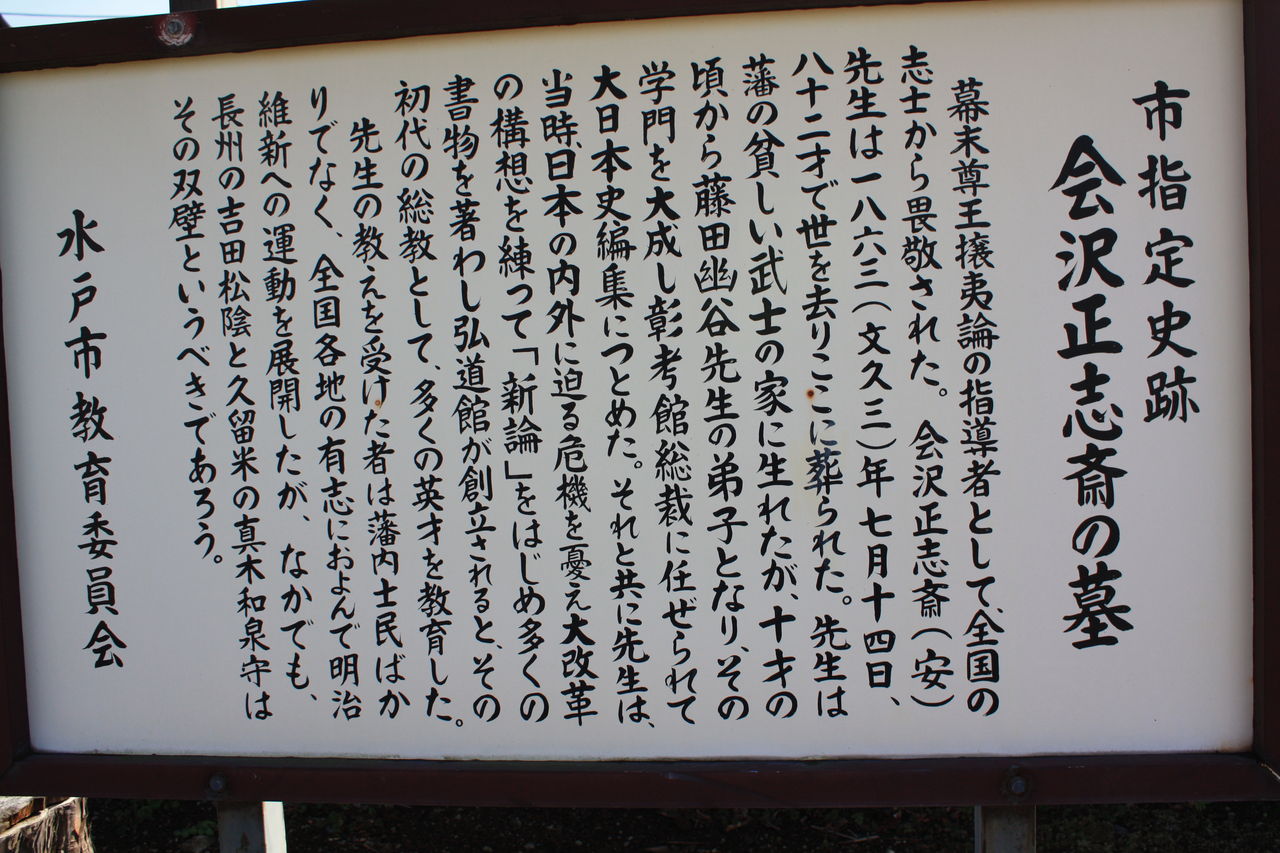 市指定史跡
会沢正志斎の墓
幕末尊王攘夷論の指導者として、全国の
志士から畏敬された。会沢正志斎(安)
先生は一八六三(文久三)年七月十四日、
八十二才で世を去りここに葬られた。先生は
藩の貧しい武士の家に生れたが、十才の
頃から藤田幽谷先生の弟子となり、その
学門を大成し彰考館総裁に任ぜられて
大日本史編集につとめた。それと共に先生は、
当時、日本の内外に迫る危機を憂え大改革
の構想を練って「新論」をはじめ多くの
書物を著わし弘道館が創立されると、その
初代の総教として、多くの英才を教育した。
先生の教えを受けた者は藩内士民ばか
りでなく、全国各地の有志におよんで明治
維新への運動を展開したが、なかでも、
長州の吉田松陰と久留米の真木和泉守は
その双壁というべきであろう。
水戸市教育委員会